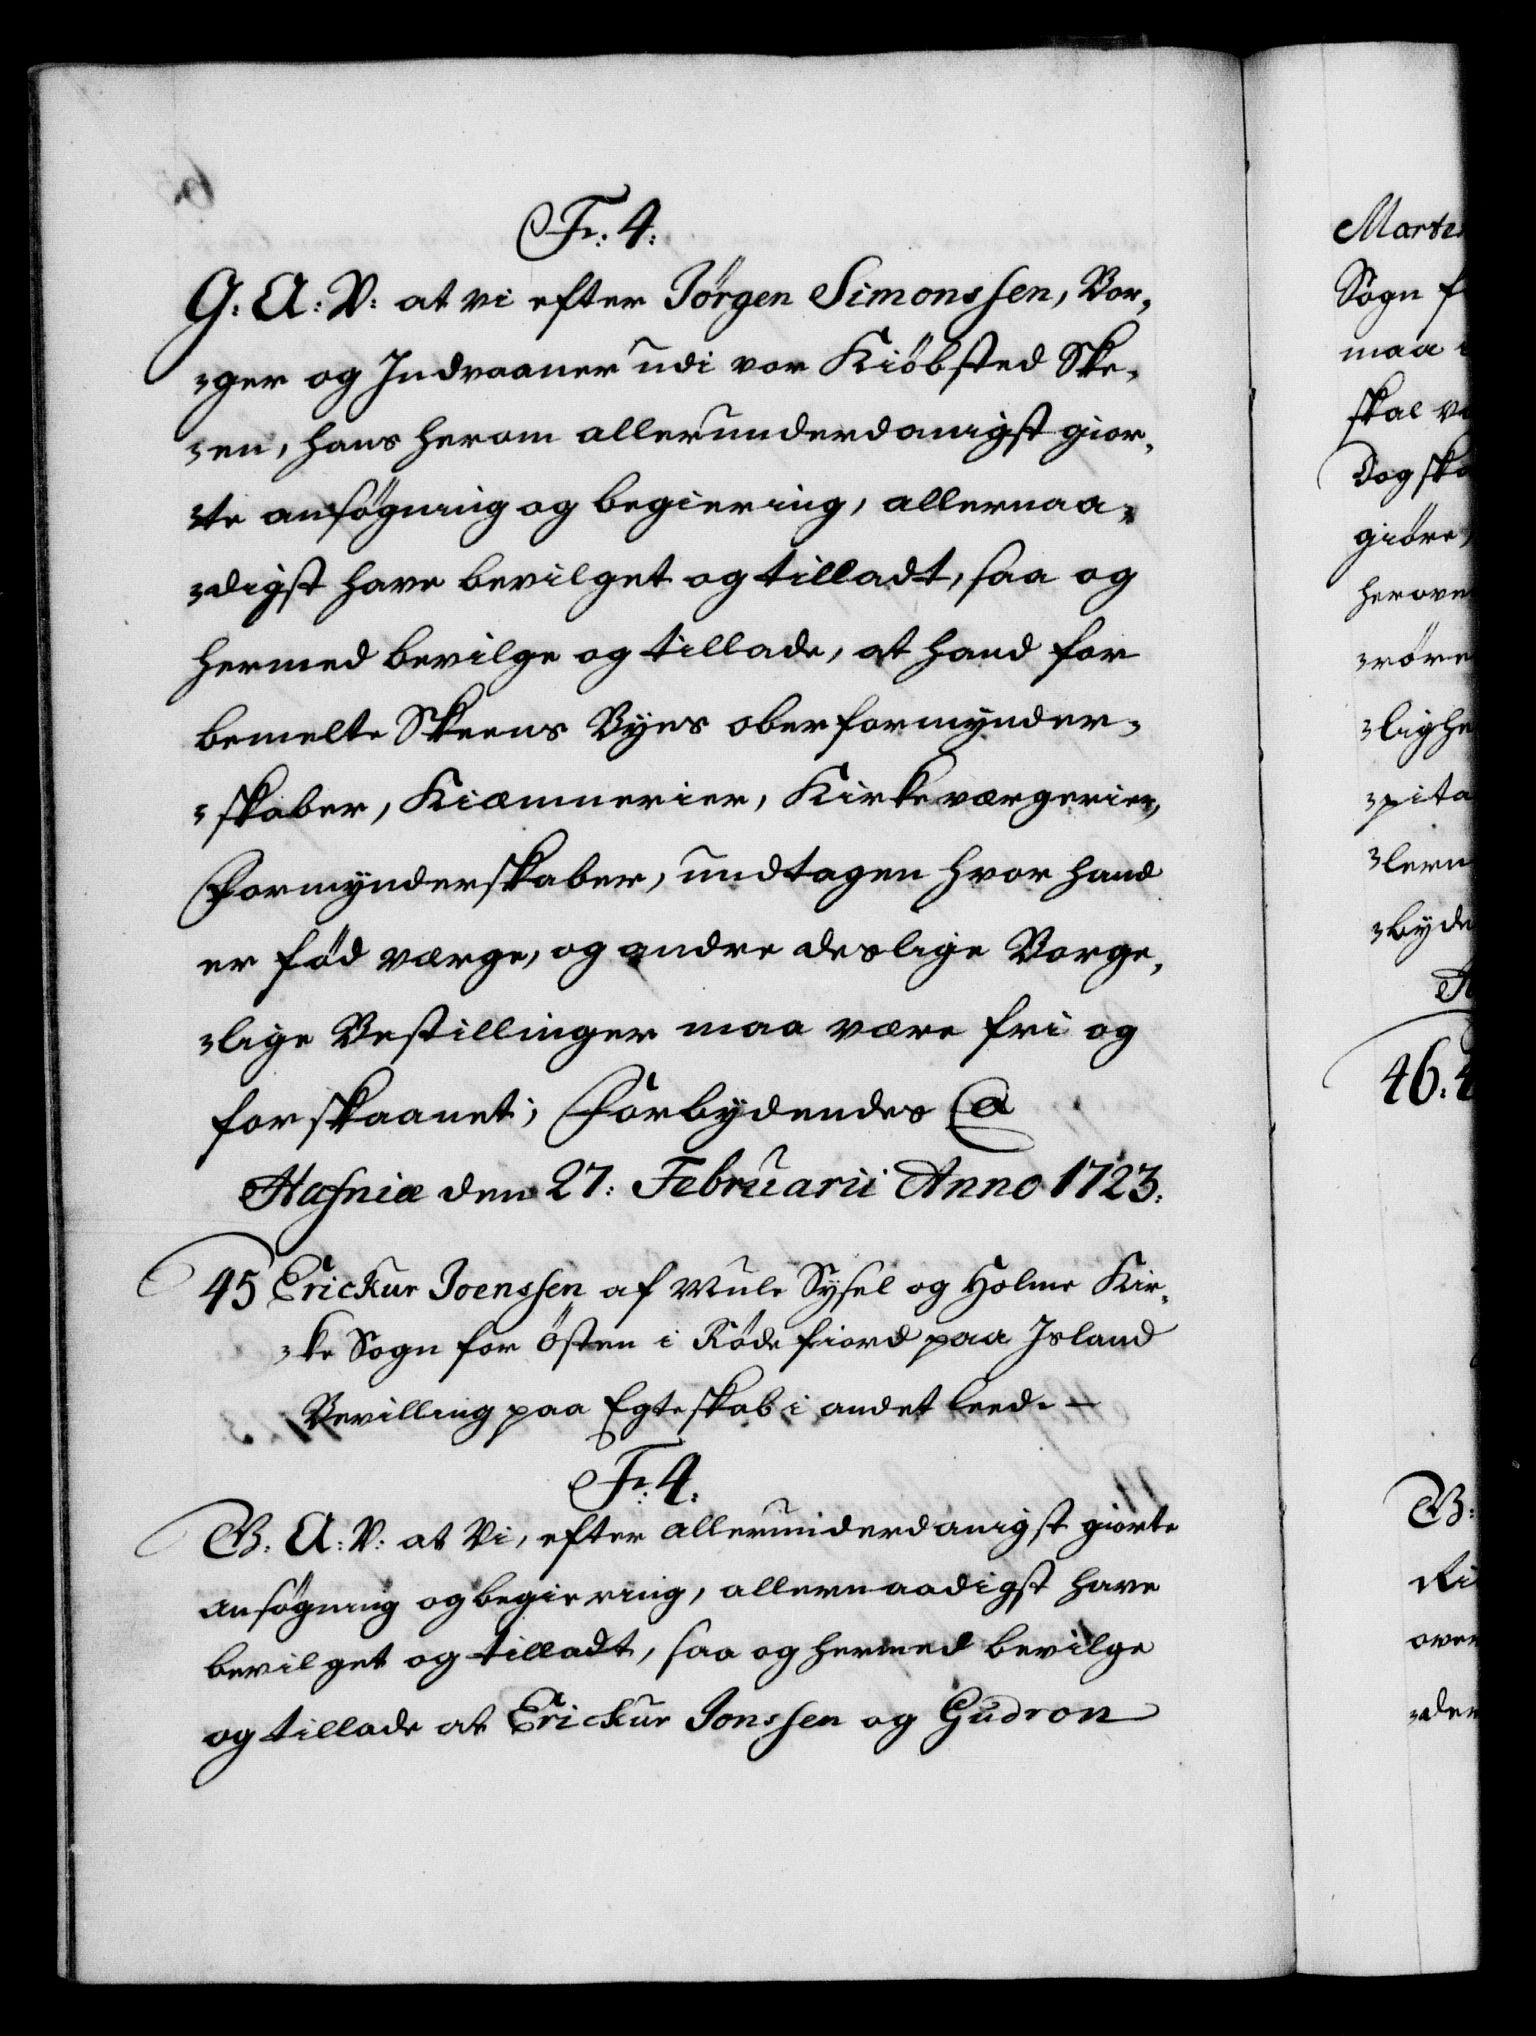 Fr: 4:
G: A: V: at vi efter Jörgen Simonssen, Bor-
-ger og Indvaaner udi vor Kiöbsted Ske-
-en, hans herom allerunderdanigst gior-
-te ansögning og begiering, allernaa-
-digst have bevilget og tilladt, saa og
hermed bevilge og tillade, at hand for
bemelte Skeens Byes oberformynder-
-skaber, Kiæmnerier, Kirkeværgerier,
Formynderskaber, undtagen hvor hand
er föd værge, og andre deslige Borge-
-lige Bestillinger maa være fri og
forskaanet; Forbydendes
Hafniæ den 27: Februarii Anno 1723:
45 Erickur Joenssen af Mule Sysel og Holme Kir-
-ke Sogn for östen i Röde fiord paa Island
Bevilling paa Egteskab i andet leed. —
Fr: 4:
G: A: V: at Vi, efter allerunderdanigst giorte
ansögning og begiering, allernaadigst have
bevilget og tilladt, saa og hermed bevilge
og tillade at Erickur Jonssen og Gudron
Sogn
maa
skal
Dog
giöre
46: